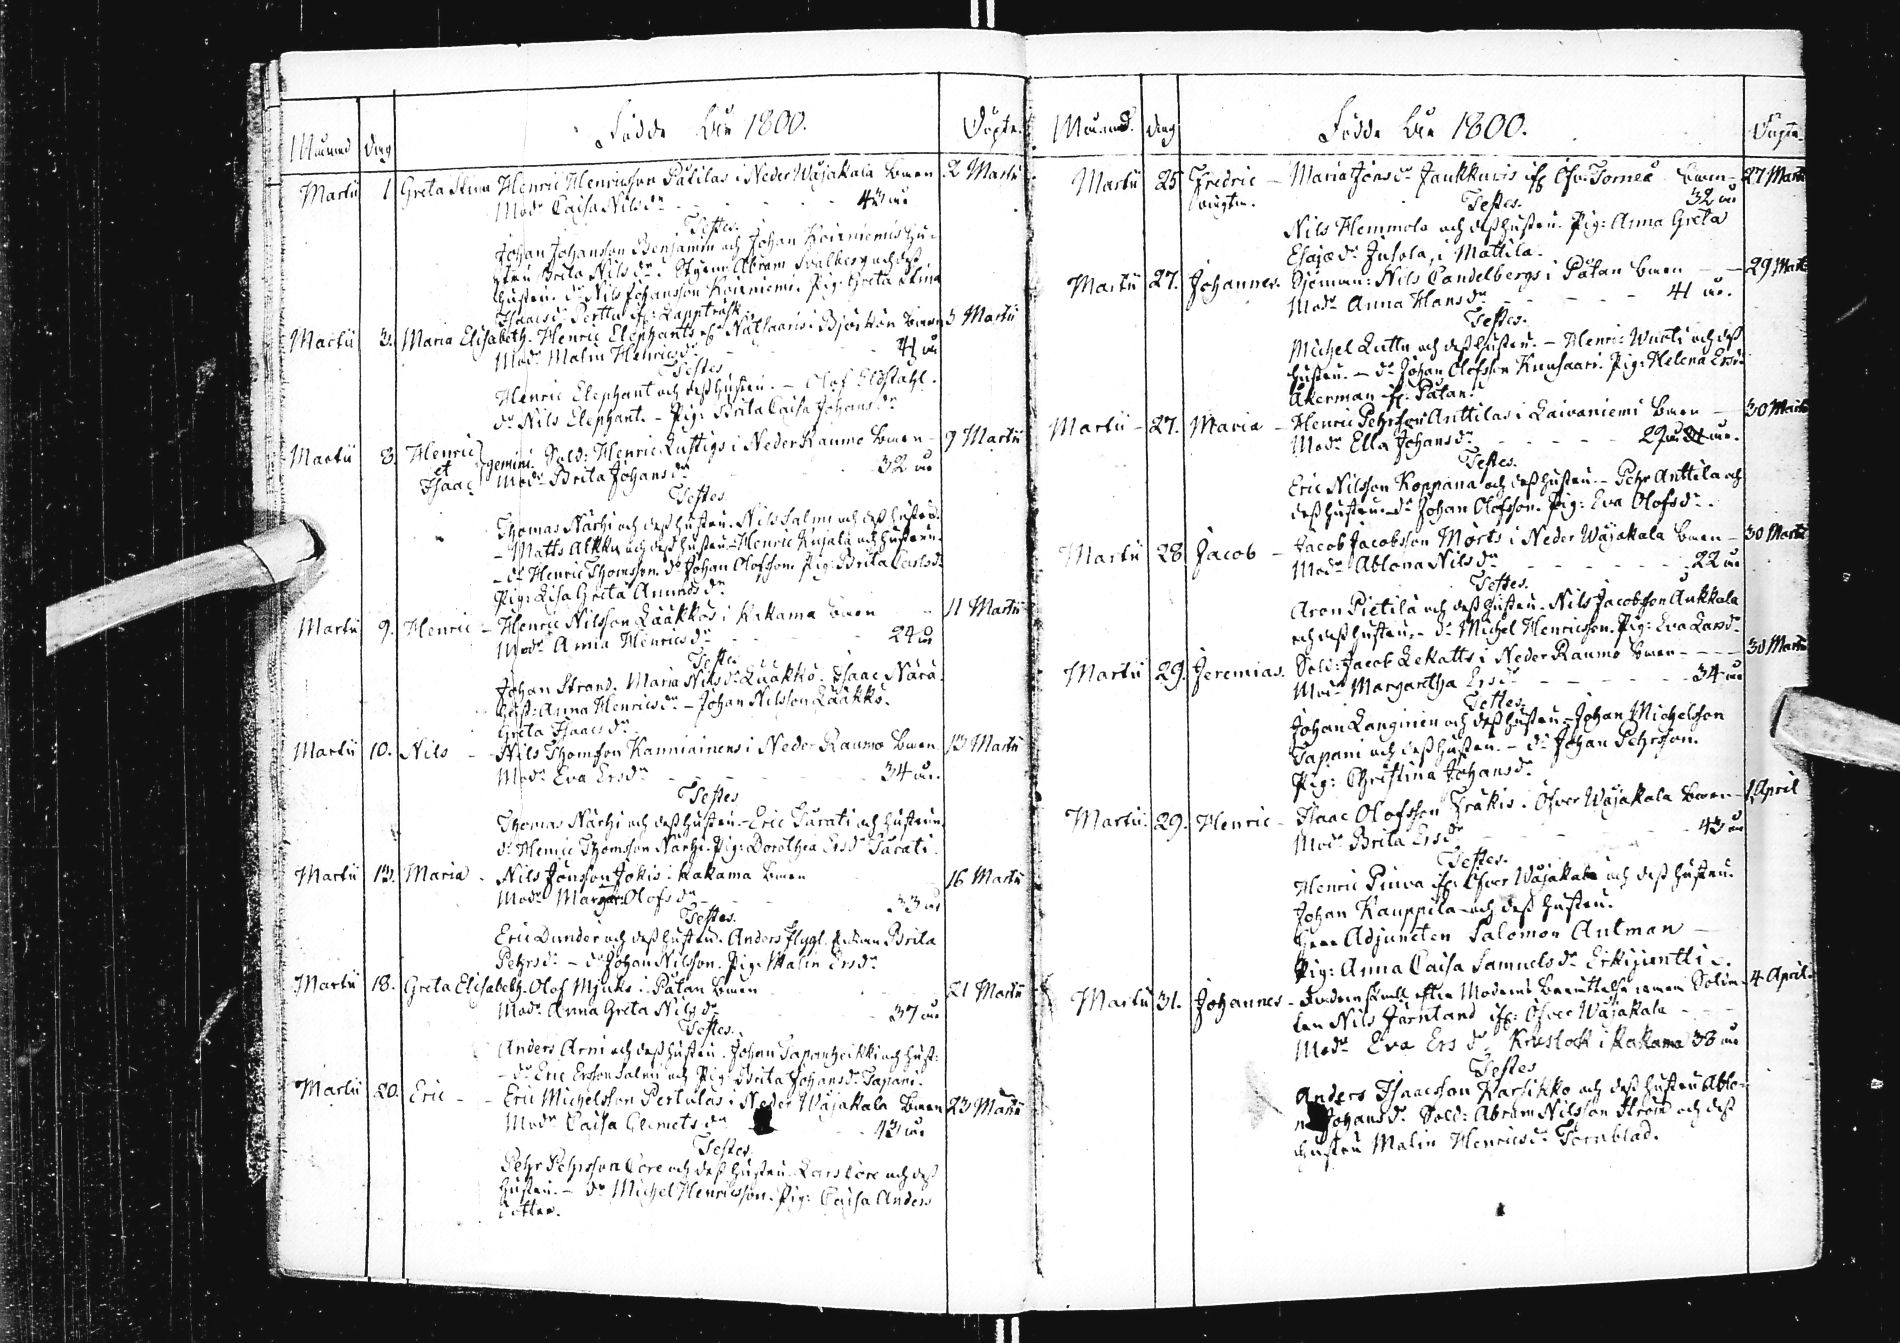 Födde åhr 1800.
Månad Dag Döpte.
Martii 1 Greta Stina Henric Henricsson Pätilas i Neder Wojakala bven 2 Martii
Modr Caisa Nilsdr 43 år
Testes.
Johan Johansson Benjamin och Johan Koivuniemis hu-
stru Brita Nilsdr. Abram Svalberg och dess
hustru. dr Nils Johansson Koivuniemi. Pig: Greta Stina
Isaacsdr Perttu fr: Lappträsk.
Martii 3. Maria Elisabeth. Henric Elephants i Björkön bven 5 Martii
Modr Malin Henricsdr 41 år
Testes
Henric Elephant och dess hustru. – Olof Eldstahl.
dr Nils Elephant. – Pig: Brita Caisa Johansdr
Martii 8. Henric et Isaac gemini. Sold: Henric Lustigs i Neder Raumo bven – 9 Martii
Modr Brita Johansdr 32 år
Testes
Thomas Närhi och dess hustru. Nils Salmi och dess hustru.
– Matts Alkku och dess hustru – Henric Kujala och hustru.
– dr Henric Thomsson. dr Johan Olofsson. Pig: Brita Carlsdr
Pig: Lisa Greta Amundsdr
Martii 9. Henric – Henric Nilsson Lääkkös i Kakama bven 11 Martii
Modr Anna Henricsdr 24 år
Testes
Johan Strand. Maria Nilsdr Lääkkö. Isaac Närä.
hust: Anna Henricsdr – Johan Nilsson Lääkkö.
Greta Isaacsdr
Martii 10. Nils – Nils Thomsson Kanniainens i Neder Raumo bven 13 Martii
Modr Eva Ersdr 34 år.
Testes
Thomas Närhi och dess hustru. – Eric Sarati och hustrun.
dr Henric Thomsson Närhi. Pig: Dorothea Ersdr Sarati.
Martii 13. Maria – Nils Jönsson Jokis i Kakama bven 16 Martii
Modr Margar: Olofsdr 33 år
Testes.
Eric Dunder och dess hustru. Anders Flygt. Brita
Pehrsdr – dr Johan Nilsson. Pig: Malin Ersdr
Martii 18. Greta Elisabeth. Olof Mjuks i Patan bven 21 Martii
Modr Anna Greta Nilsdr 37 år
Testes.
Anders Arni och dess hustru. Johan Tapanheikki och hust:
– dr Eric Ersson Salmi och Pig: Brita Johansdr Tapani.
Martii 20. Eric – – Eric Michelsson Pertulas i Neder Wojakala bven 23 Martii
Modr Caisa Clemetsdr 43 år
Testes.
Pehr Pehrsson Core och dess hustru. Lars Core och dess
hustru. – dr Michel Henricsson. Pig: Caisa Anders
dotter.
Månad. Dag Födde åhr 1800. Döpte
Martii 25 Fredric – Maria Jönsdr Jaukkuris fr Öfv: Torneå bven – 27 Martii
oägta. 32 år
Testes.
Nils Hemmola och dess hustru. Pig: Anna Greta
Esajædr Juhola, i Mattila.
Martii 27. Johannes. Sjöman: Nils Candelbergs i Patan bven – 29 Martii
Modr Anna Hansdr 41 år.
Testes.
Michel Luttu och dess hustru. – Henric Wuoti och dess
hustru. – dr Johan Olofsson Kunsaari. Pig: Helena Ersdr
Åkerman fr: Patan.
Martii – 27. Maria – Henric Pehrsson Anttilas i Laivaniemi bven – 30 Martii
Modr Ella Johansdr 29 år.
Testes.
Eric Nilsson Koppana och dess hustru. – Pehr Anttila och
dess hustru. dr Johan Olofsson. Pig: Eva Olofsdr.
Martii 28 Jacob – Jacob Jacobsson Mörts i Neder Wojakala bven – 30 Martii
Modr Ablona Nilsdr 22 år
Testes.
Aron Pietilä och dess hustru. Nils Jacobsson Aukkala
och dess hustru. – dr Michel Henricsson. Pig: Eva Larsdr
Martii 29. Jeremias. Sold: Jacob Lekatts i Neder Raumo bven – – – 30 Martii
Modr Margaretha Ersdr 34 år
Testes.
Johan Langinen och dess hustru – Johan Michelsson
Tapani och dess hustru. – dr Johan Pehrsson.
Pig: Christina Johansdr
Martii. 29. Henric – Isaac Olofsson Fräkis i Öfver Wojakala bven – 1 April
Modr Brita Ersdr 43 år
Testes.
Henric Pinva fr: Öfver Wojakala och dess hustru.
Johan Kauppila och dess hustru.
Herr Adjuncten Salomon Antman –
Pig: Anna Caisa Samuelsdr Erkijontti.
Martii 31. Johannes – efter Modrens berättelse 4 April
Nils Järnland fr: Öfver Wojakala
Modr Eva Ersdr i Kakama 38 år
Testes
Anders Isaacsson Karsikko och dess hustru Ablo-
na Johansdr. Sold: Abram Nilsson Ström och dess
hustru Malin Henricsdr Törnblad.